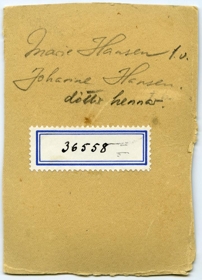 Marie Hansen f.v.
Johanne Hansen.
dóttir hennar.
36558